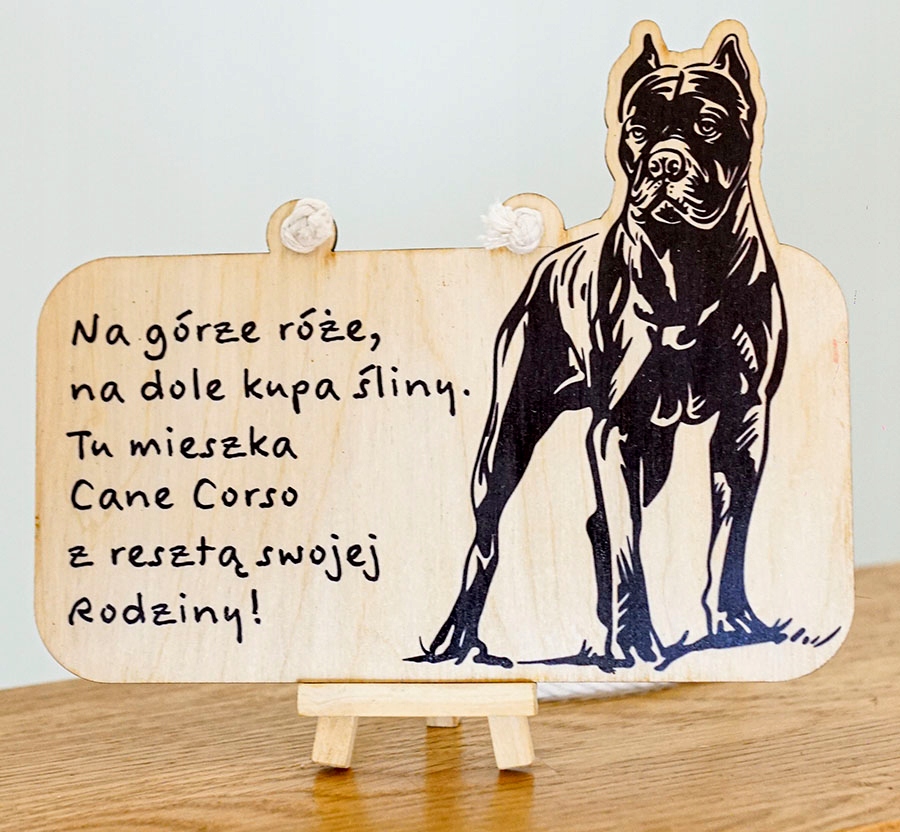 Na górze róże,
na dole kupa śliny.
Tu mieszka
Cane Corso
z resztą swojej
Rodziny!